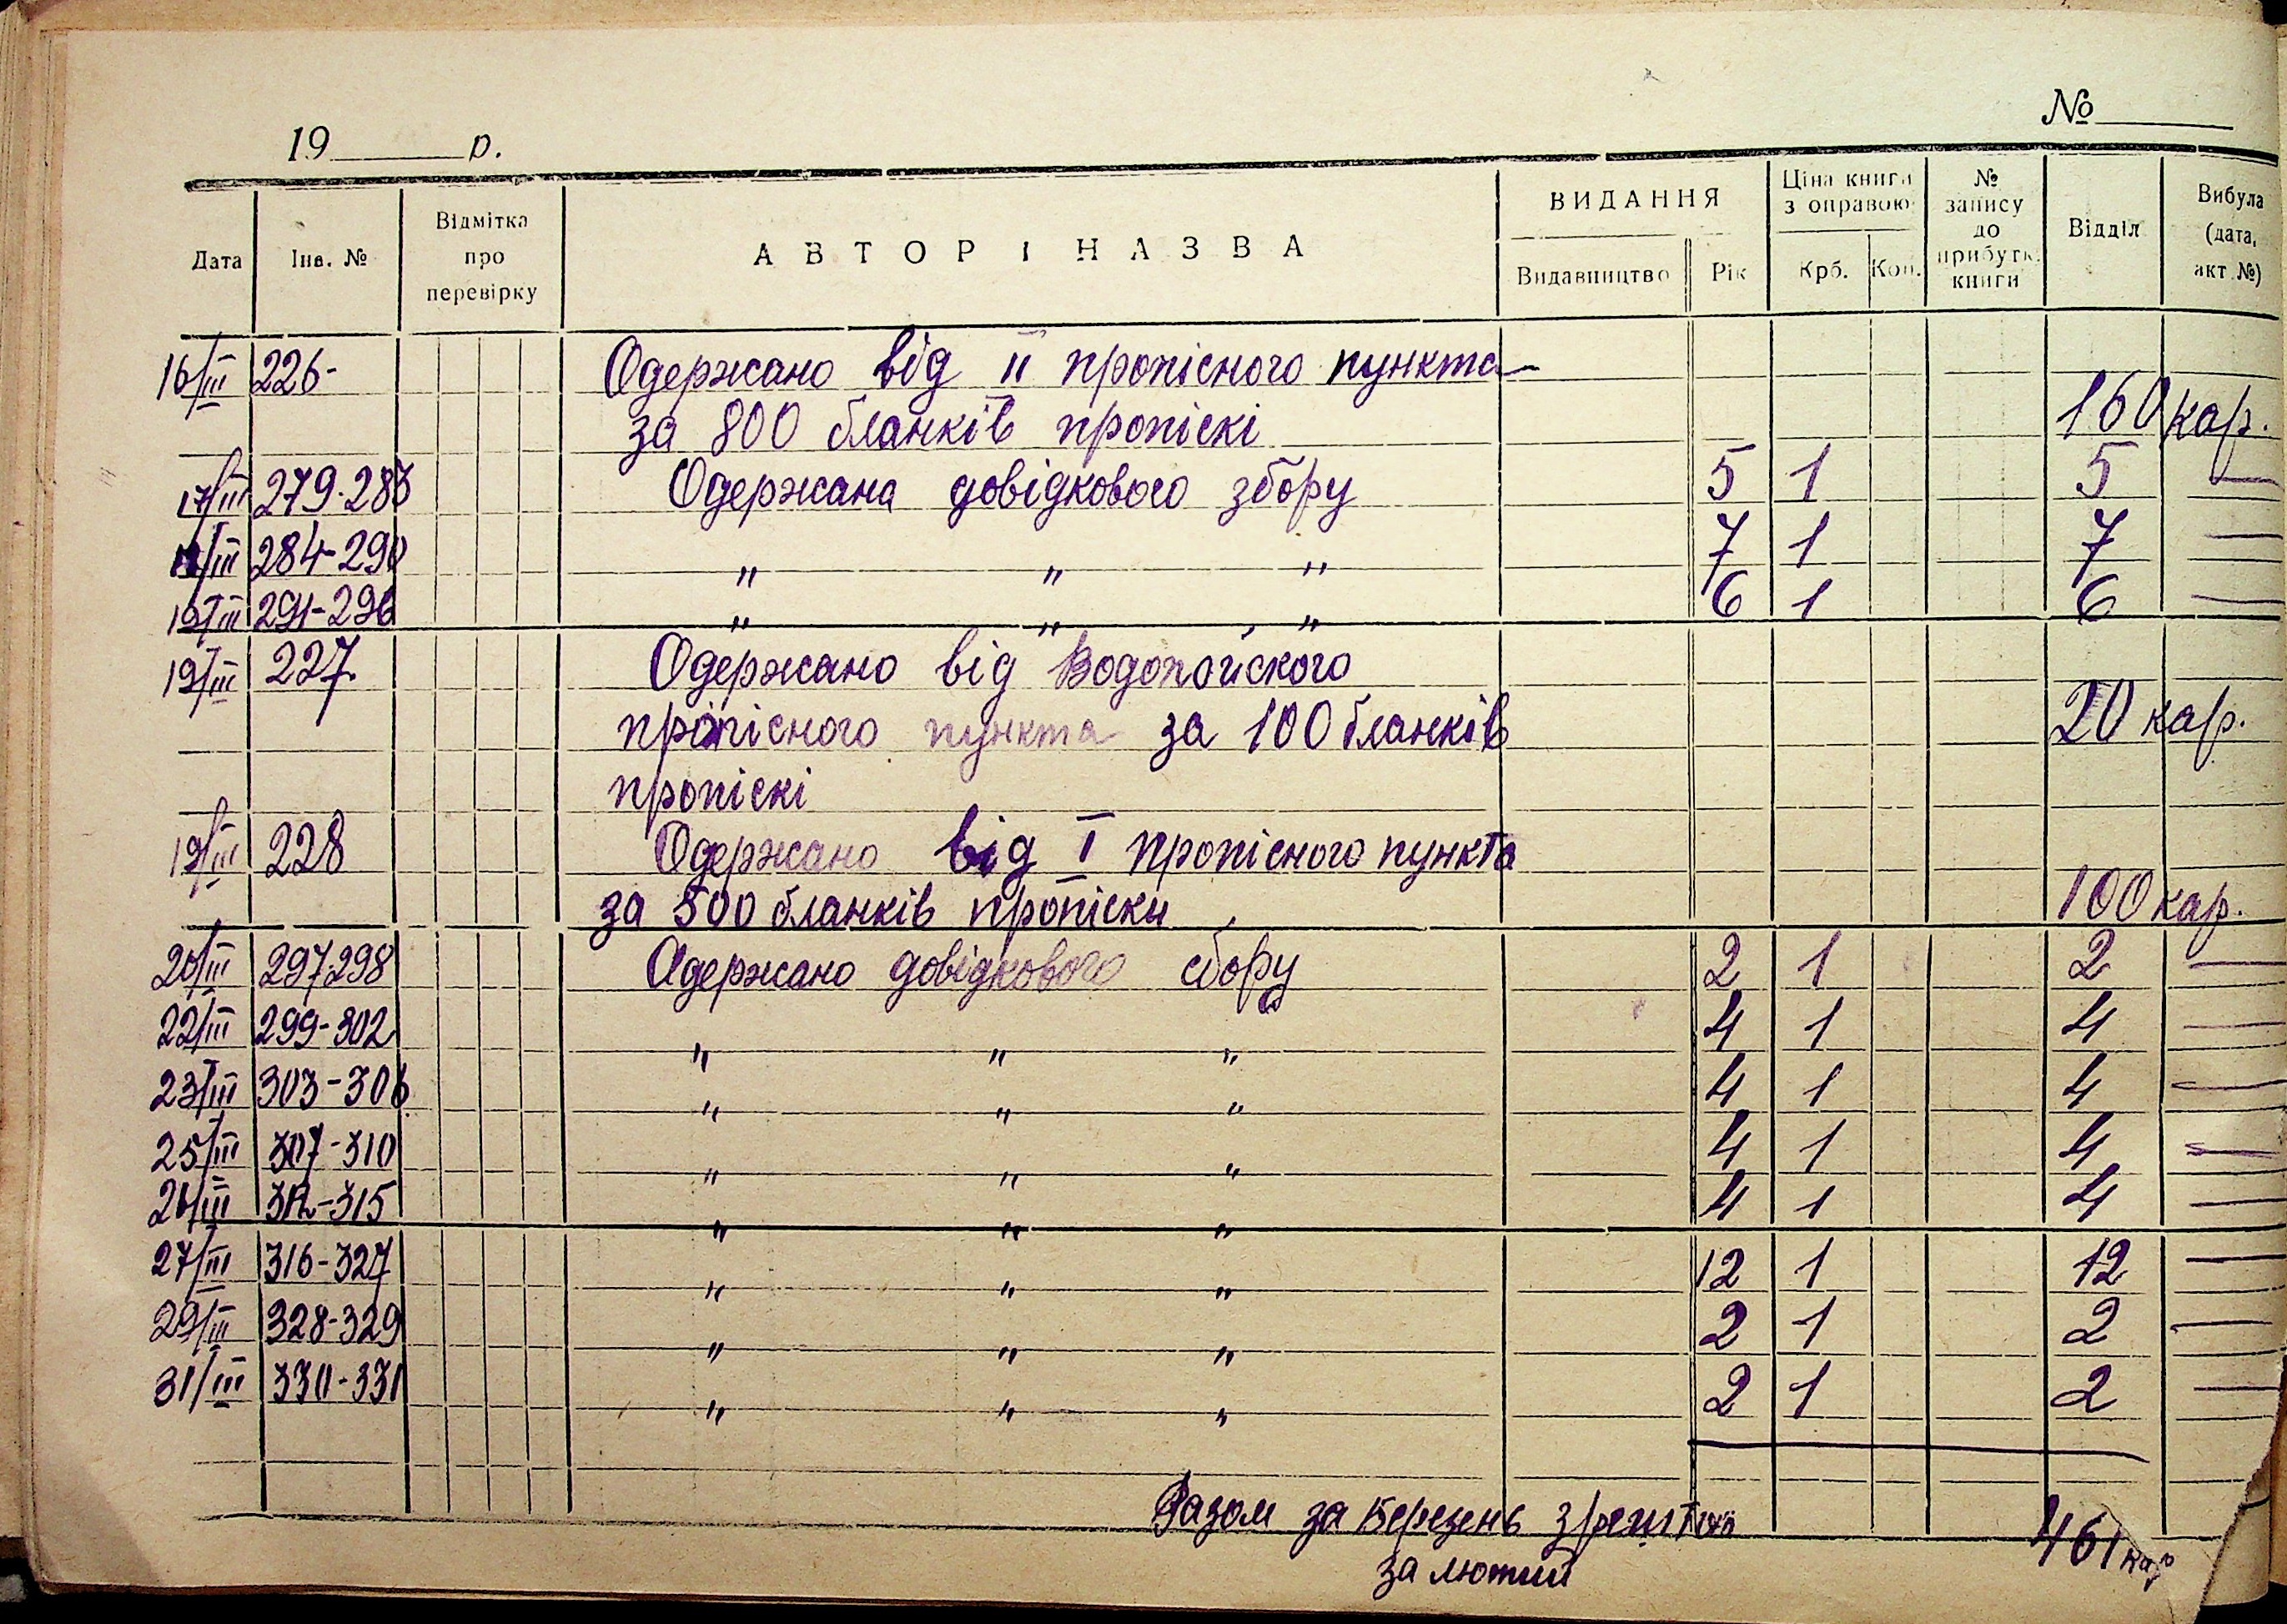 19____р.
№____
Дата Інв. № Відмітка про перевірку АВТОР І НАЗВА ВИДАННЯ Видавництво Рік Ціна книги з оправою Крб. Коп. № запису до прибутк. книги Відділ Вибула (дата, акт №)
16/III 226- Одержано від II пропісного пункта
за 800 бланків пропіскі 160 кар.
17/III 279-283 Одержана довідкового збору 5 1 5 —
18/III 284-290 " " " 7 1 7 —
19/III 291-296 " " " 6 1 6 —
19/III 227 Одержано від Водопойского
пропісного пункта за 100 бланків 20 кар.
пропіскі
19/III 228 Одержано від I пропісного пункта
за 500 бланків пропіски 100 кар.
20/III 297298 Одержано довідкового сбору 2 1 2 —
22/III 299-302 " " " 4 1 4 —
23/III 303-306 " " " 4 1 4 —
25/III 307-310 " " " 4 1 4 —
26/III 312-315 " " " 4 1 4 —
27/III 316-327 " " " 12 1 12 —
29/III 328-329 " " " 2 1 2 —
31/III 330-331 " " " 2 1 2 —
Разом за Березень з
за лютий 461 кар